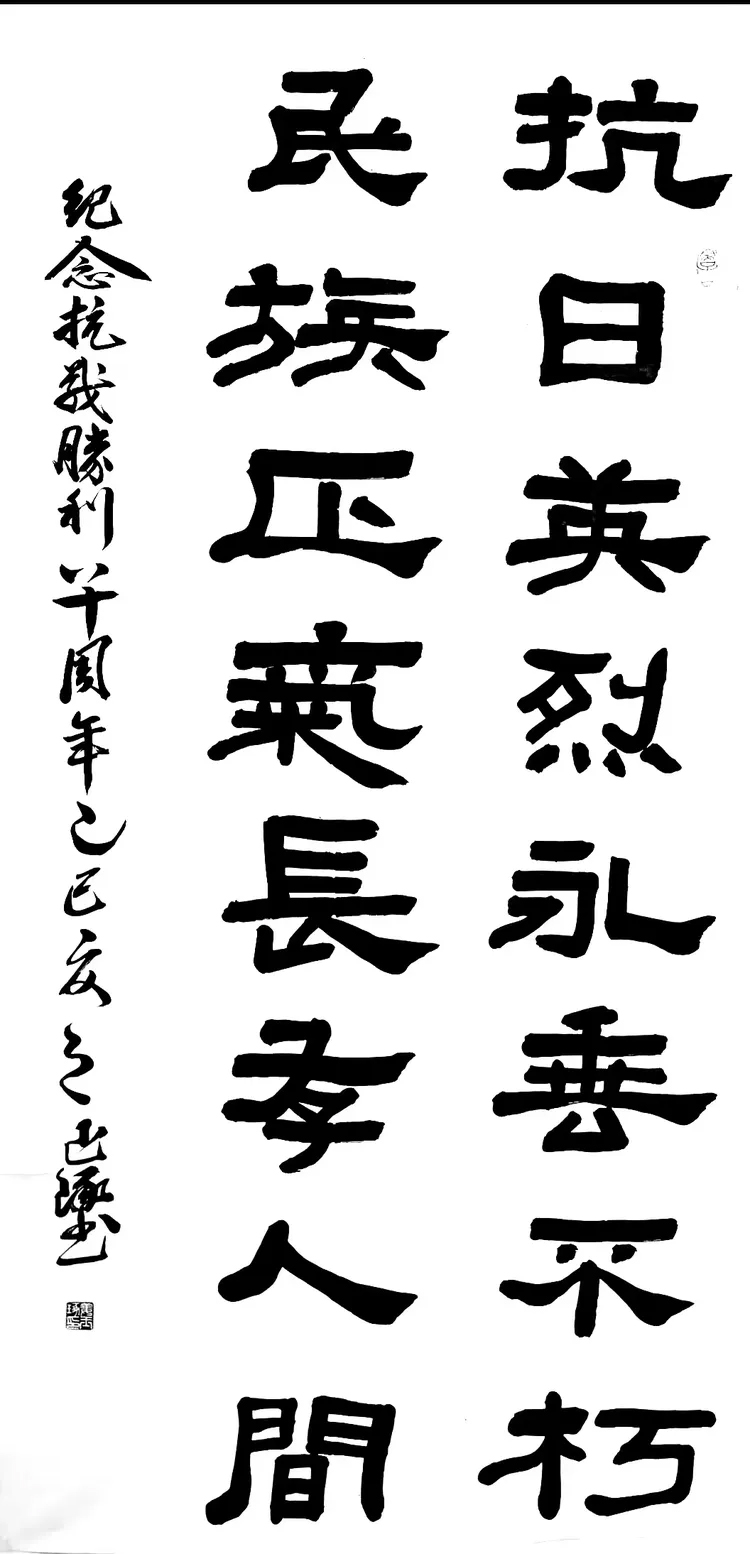 抗日英烈永垂不朽
民族正氣長存人間
纪念抗戰勝利八十周年乙巳夏